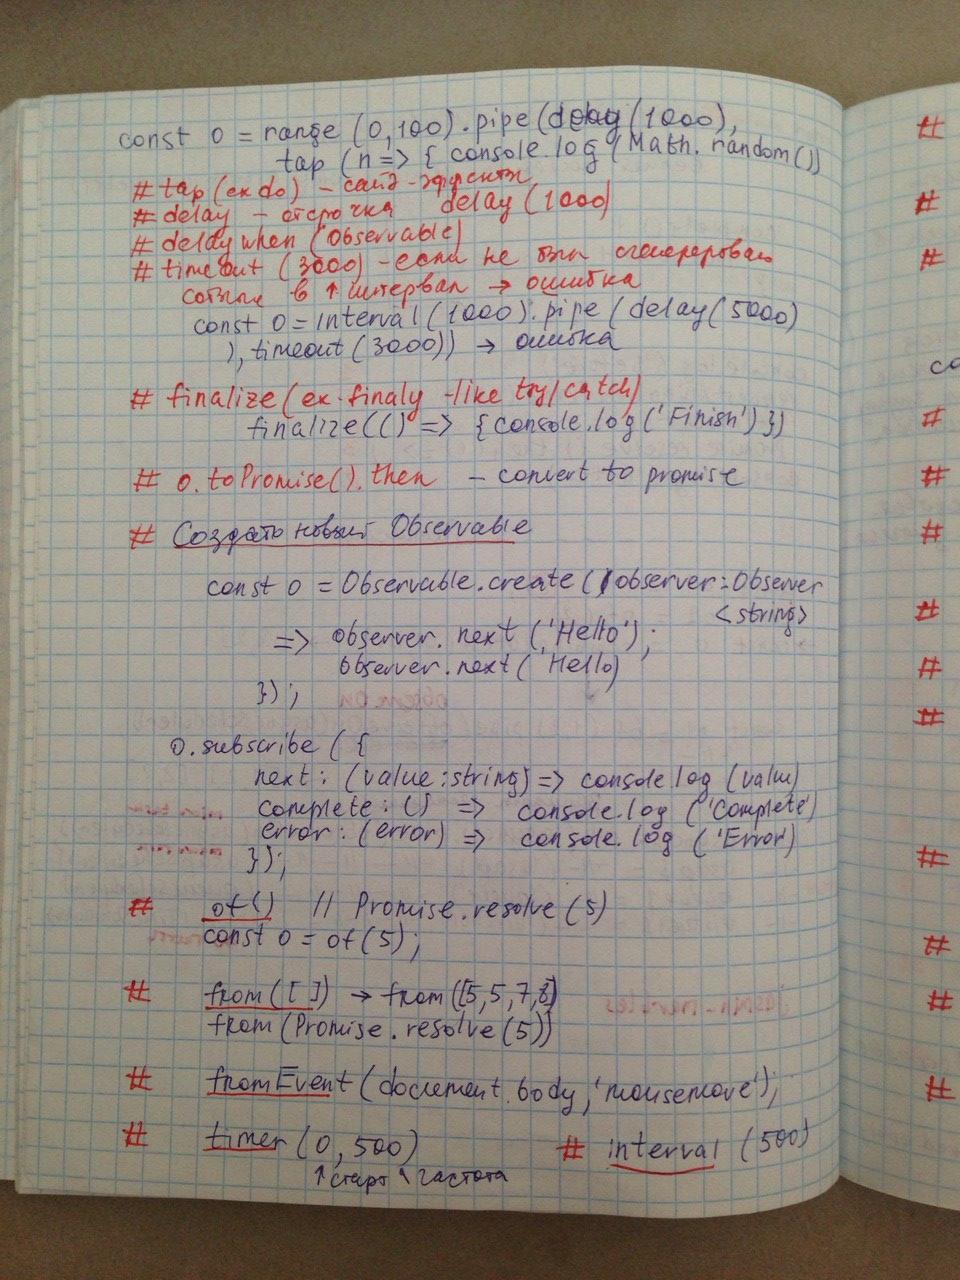 const o = range (0,100).pipe(delay (1000),
tap (n => { console.log (Math. random())
# tap (ex do) - сайд-эффекты
# delay - отсрочка delay (1000)
# delay when (Observable)
# timeout (3000) - если не был сгенерерован
событие в ↑ интервал → ошибка
const o = interval (1000).pipe (delay(5000)
), timeout (3000)) → ошибка
# finalize (ex. finaly -like try/catch)
finalize(() => {console.log('Finish') })
# o.toPromise().then - convert to promise
# Создать новый Observable
const o = Observable.create ((observer: Observer
<string>
=> observer. next ('Hello');
observer.next ('Hello)
});
o.subscribe ({
next: (value:string) => console.log (value)
complete: () => console.log ('Complete')
error: (error) => console.log ('Error)
});
# of() // Promise.resolve (5)
const o = of(5);
# from([ ]) → from ([5,5,7,8])
from (Promise.resolve(5))
# fromEvent (document.body, 'mousemove');
# timer (0, 500) # interval (500)
↑ старт ↖ частота